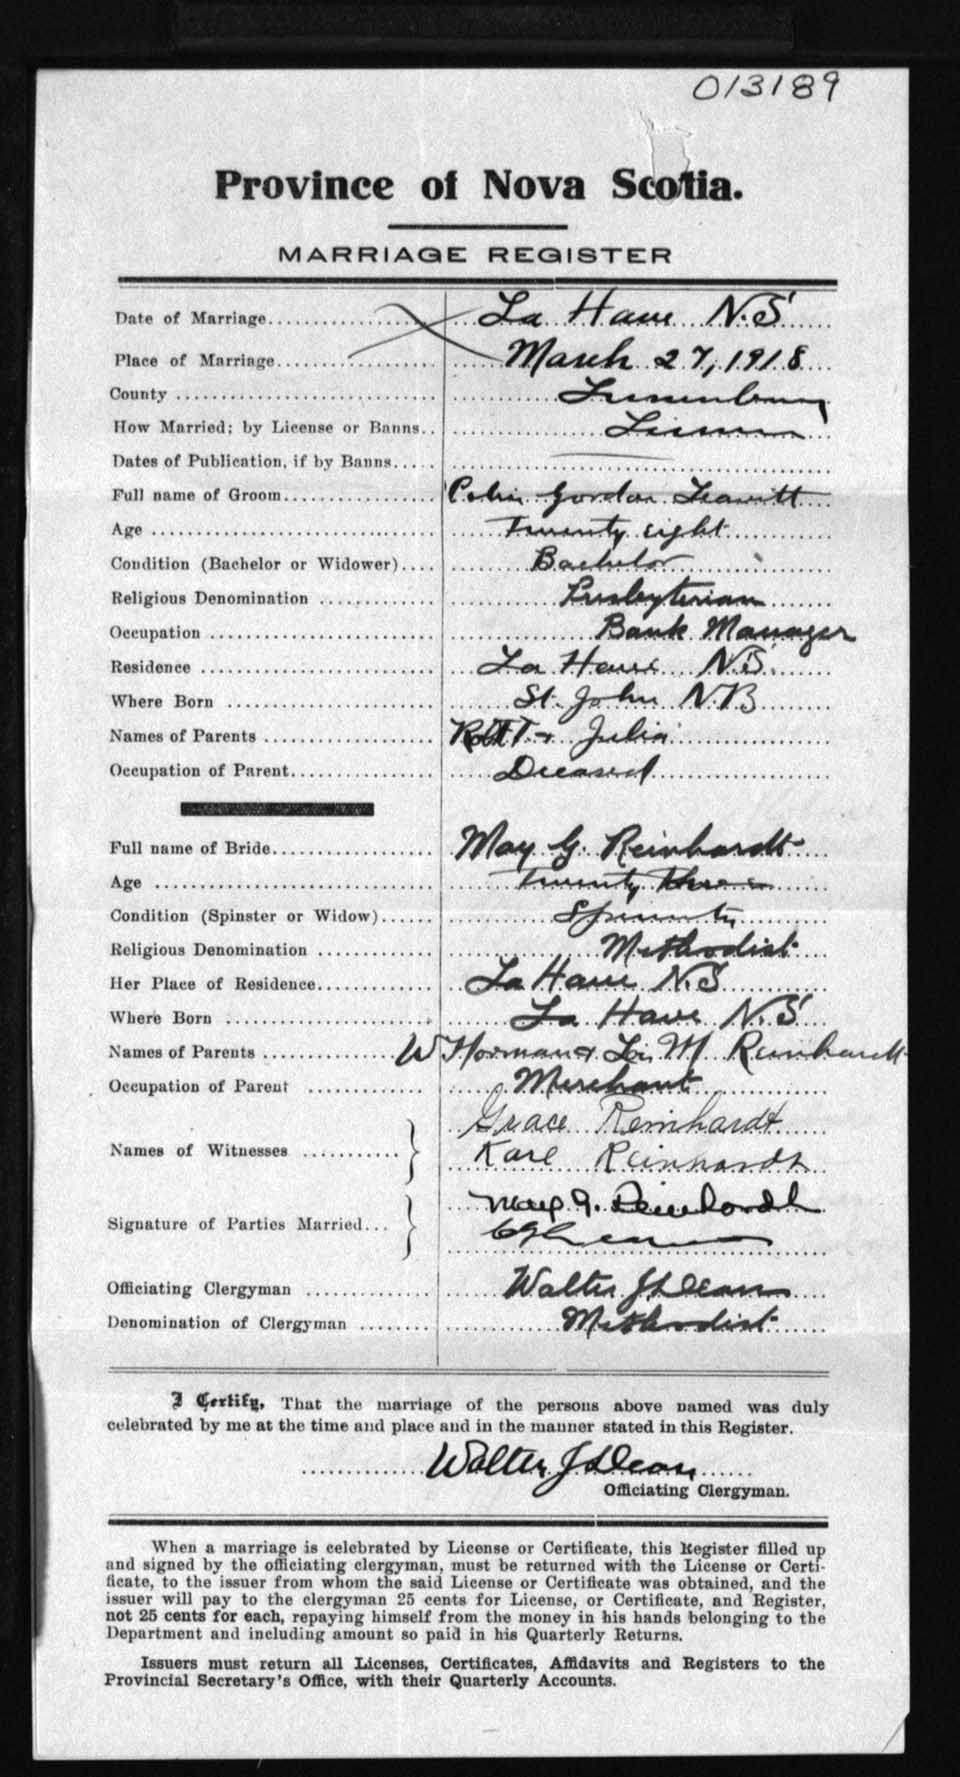 013189
Province of Nova Scotia.
MARRIAGE REGISTER
Date of Marriage La Have N.S
Place of Marriage March 27, 1918
County Lunenburg
How Married; by License or Banns License
Dates of Publication, if by Banns
Full name of Groom Colin Gordon Leavitt
Age Twenty eight
Condition (Bachelor or Widower) Bachelor
Religious Denomination Presbyterian
Occupation Bank Manager
Residence La Have N.S.
Where Born St. John N.B
Names of Parents Robt T + Julia
Occupation of Parent Deceased
Full name of Bride May G. Reinhardt
Age Twenty three
Condition (Spinster or Widow) Spinster
Religious Denomination Methodist
Her Place of Residence La Have N.S
Where Born La Have N.S
Names of Parents W Norman & M Reinhardt
Occupation of Parent Merchant
Names of Witnesses Grace Reinhardt
Karl Reinhardt
Signature of Parties Married May G. Reinhardt
Officiating Clergyman Walter J Dean
Denomination of Clergyman Methodist
I Certify, That the marriage of the persons above named was duly
celebrated by me at the time and place and in the manner stated in this Register.
Walter J Dean
Officiating Clergyman.
When a marriage is celebrated by License or Certificate, this Register filled up
and signed by the officiating clergyman, must be returned with the License or Certi-
ficate, to the issuer from whom the said License or Certificate was obtained, and the
issuer will pay to the clergyman 25 cents for License, or Certificate, and Register,
not 25 cents for each, repaying himself from the money in his hands belonging to the
Department and including amount so paid in his Quarterly Returns.
Issuers must return all Licenses, Certificates, Affidavits and Registers to the
Provincial Secretary's Office, with their Quarterly Accounts.